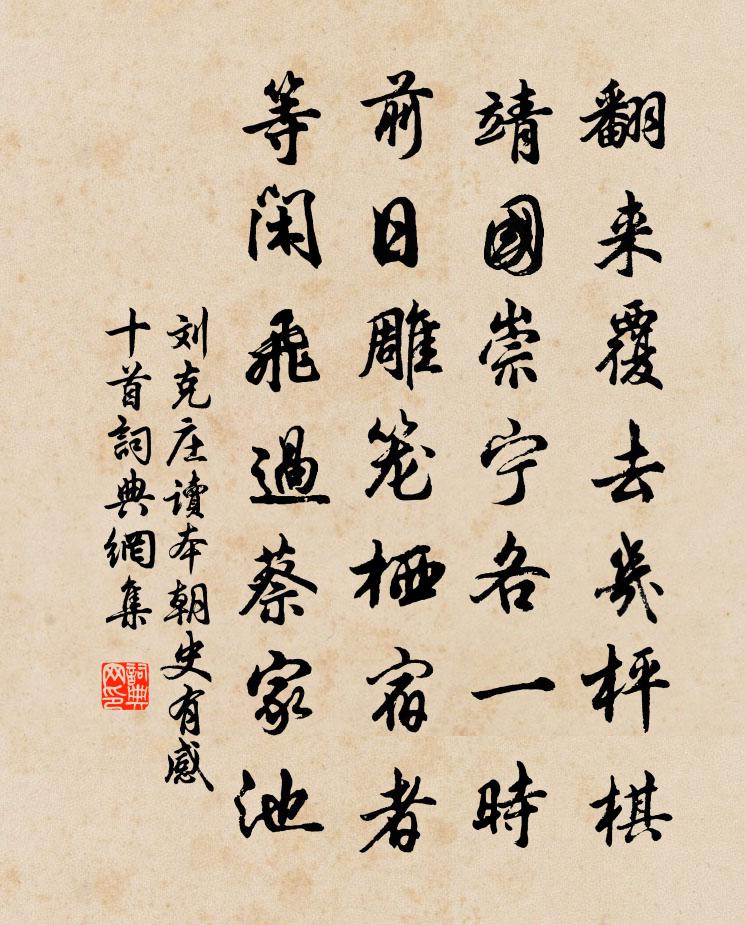 翻来覆去幾枰棋
靖國崇宁各一時
前日雕笼栖宿者
等閑飛過蔡家池
刘克庄讀本朝史有感
十首詞典網集
詞典网印